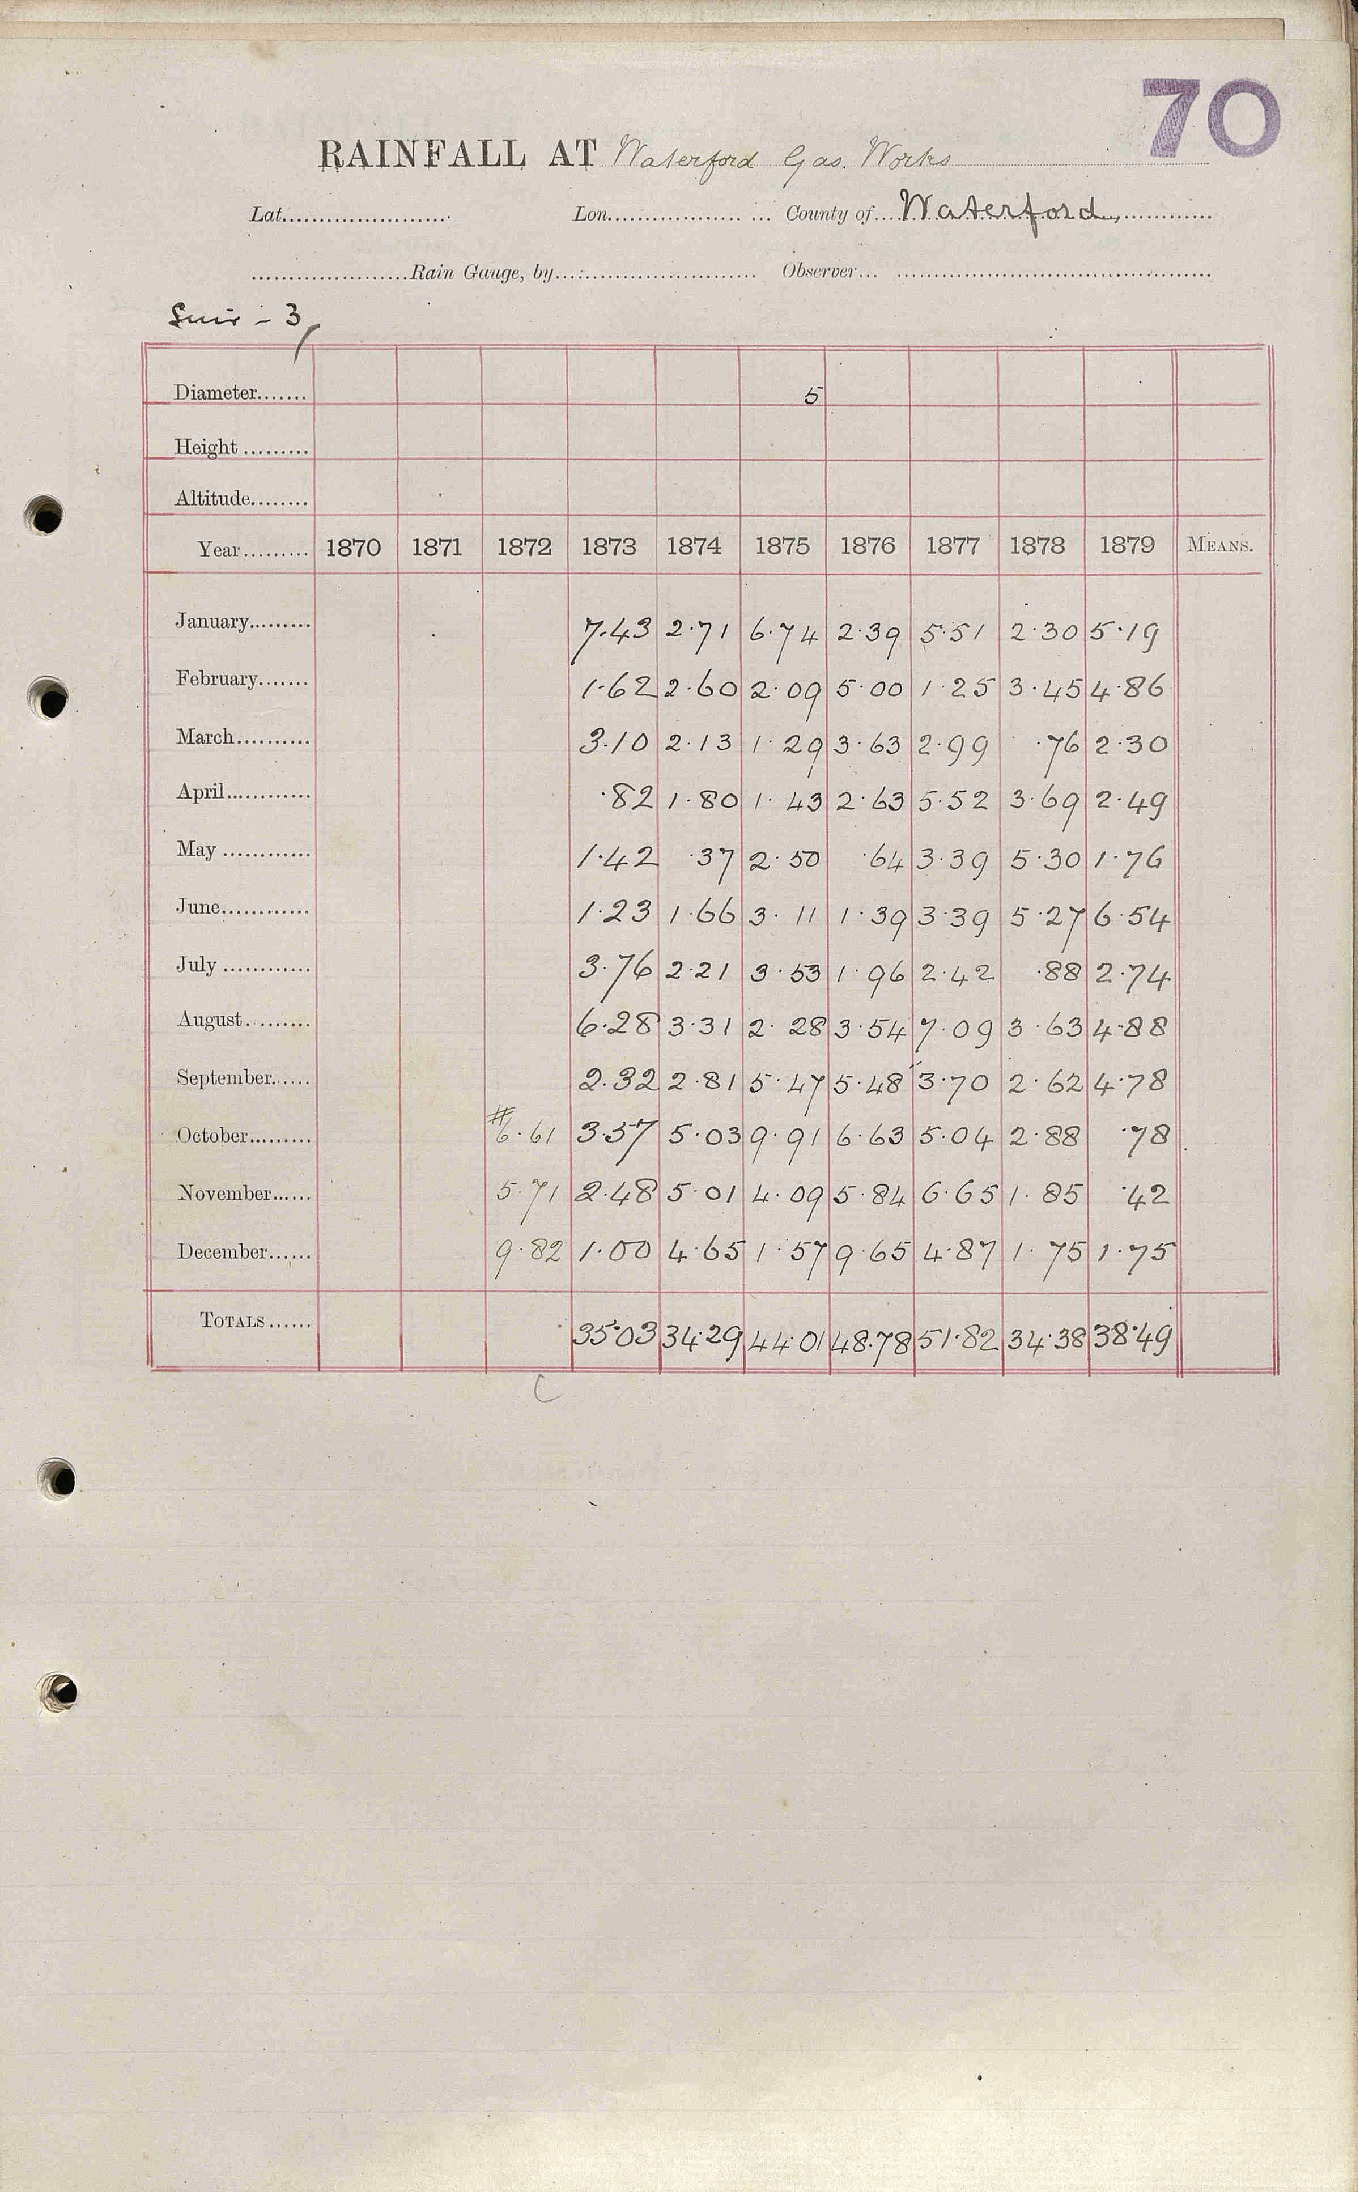 70
RAINFALL AT Waterford Gas. Works
Lat. Lon. County of Waterford
Rain Gauge, by Observer
Suir - 3
Diameter 5
Height
Altitude
Year 1870 1871 1872 1873 1874 1875 1876 1877 1878 1879 MEANS.
January 7.43 2.71 6.74 2.39 5.51 2.30 5.19
February 1.62 2.60 2.09 5.00 1.25 3.45 4.86
March 3.10 2.13 1.29 3.63 2.99 .76 2.30
April .82 1.80 1.43 2.63 5.52 3.69 2.49
May 1.42 .37 2.50 .64 3.39 5.30 1.76
June 1.23 1.66 3.11 1.39 3.39 5.27 6.54
July 3.76 2.21 3.53 1.96 2.42 .88 2.74
August 6.28 3.31 2.28 3.54 7.09 3.63 4.88
September 2.32 2.81 5.47 5.48 3.70 2.62 4.78
October #6.61 3.57 5.03 9.91 6.63 5.04 2.88 .78
November 5.71 2.48 5.01 4.09 5.84 6.65 1.85 .42
December 9.82 1.00 4.65 1.57 9.65 4.87 1.75 1.75
TOTALS 35.03 34.29 44.01 48.78 51.82 34.38 38.49